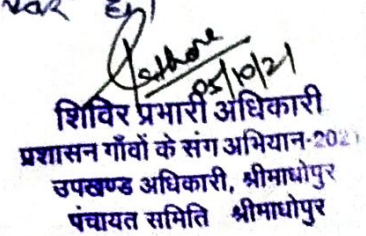 05/10/21
शिविर प्रभारी अधिकारी
प्रशासन गाँवों के संग अभियान-2021
उपखण्ड अधिकारी, श्रीमाधोपुर
पंचायत समिति श्रीमाधोपुर